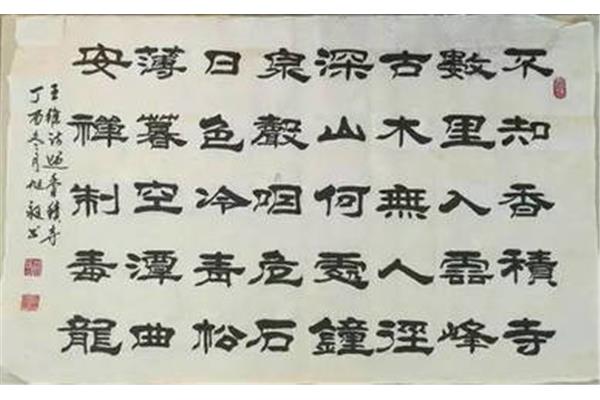 不知香積寺
數里入雲峰
古木無人徑
深山何處鐘
泉聲咽危石
日色冷青松
薄暮空潭曲
安禪制毒龍
王維诗過香積寺
丁酉冬月旭书